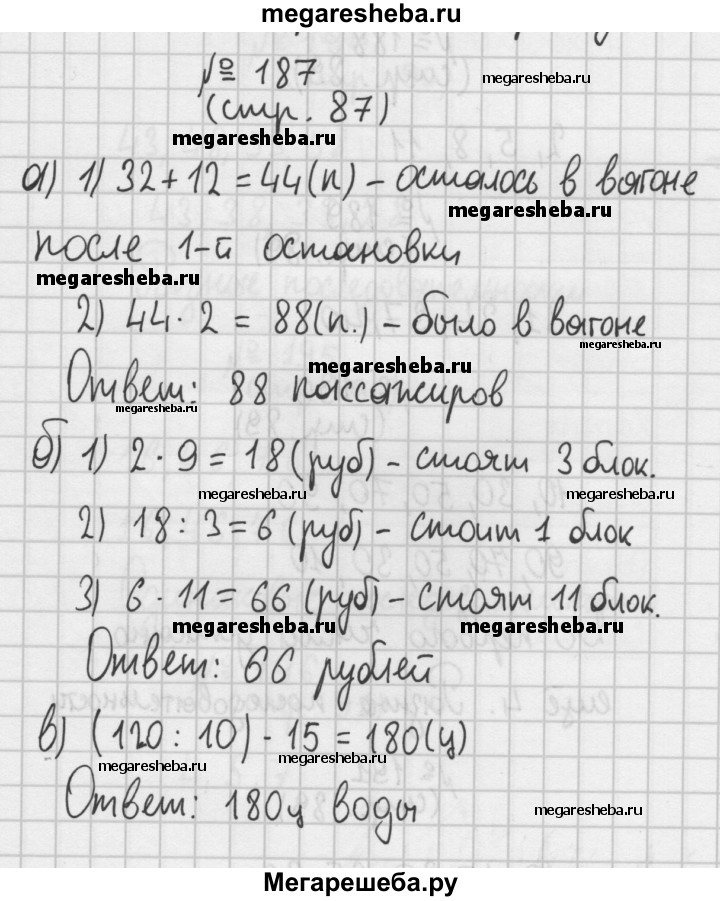 megaresheba.ru
№ 187
megaresheba.ru
(стр. 87)
megaresheba.ru
а) 1) 32 + 12 = 44 (п) - осталось в вагоне
megaresheba.ru
после 1-й остановки
megaresheba.ru
2) 44 · 2 = 88 (п.) - было в вагоне
megaresheba.ru
megaresheba.ru
Ответ: 88 пассажиров
megaresheba.ru
б) 1) 2 · 9 = 18 (руб) - стоят 3 блок.
megaresheba.ru
megaresheba.ru
2) 18 : 3 = 6 (руб) - стоит 1 блок
megaresheba.ru
megaresheba.ru
3) 6 · 11 = 66 (руб) - стоят 11 блок.
megaresheba.ru
megaresheba.ru
Ответ: 66 рублей
в) (120 : 10) · 15 = 180 (ц)
megaresheba.ru
megaresheba.ru
Ответ: 180ц воды
megaresheba.ru
Мегарешеба.ру